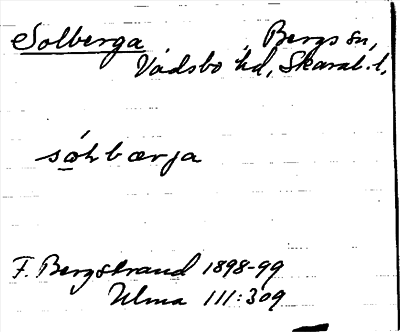 Solberga , Bergs sn,
Vadsbo hd, Skarab. l,
sólbærja
F. Bergstrand 1898-99
Ulma 111:309